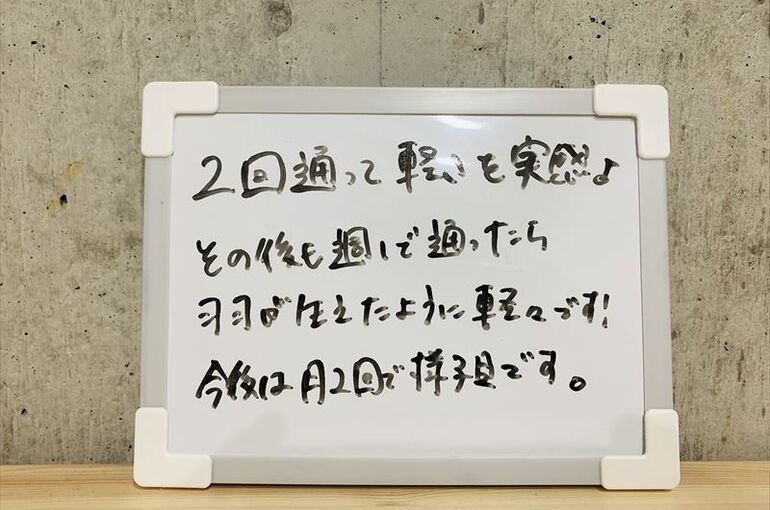 2回通って軽いを実感♪
その後も週1で通ったら
羽が生えたように軽々です!
今後は月2回で様子見です。